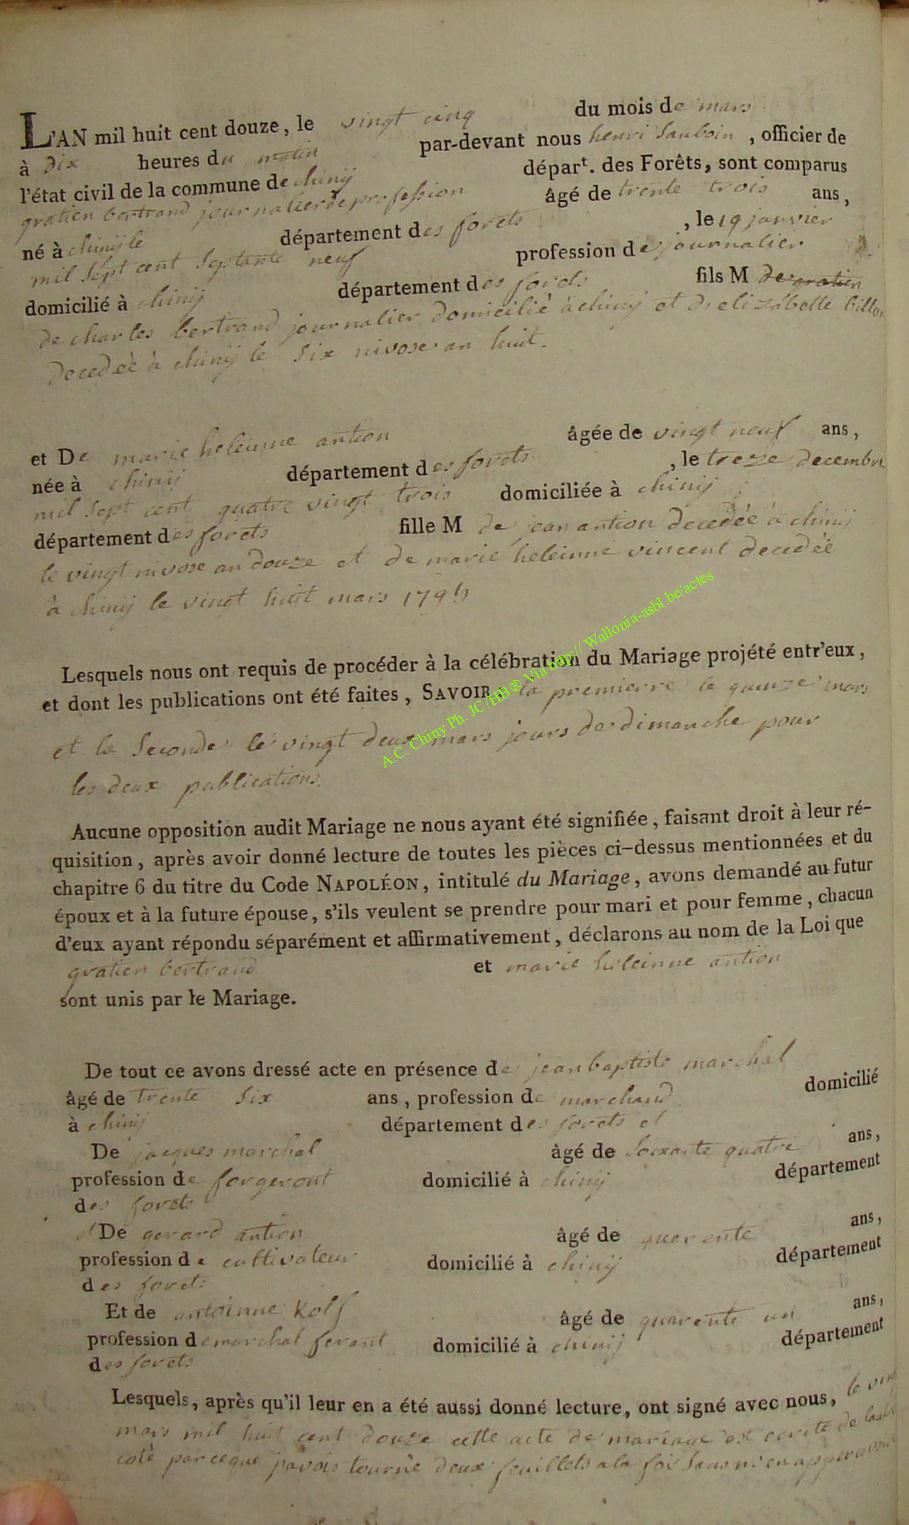 L'AN mil huit cent douze, le vingt cinq du mois de mars
à dix heures du matin par-devant nous henri Sauboin, officier de
l'état civil de la commune de chinij départ. des Forêts, sont comparus
gratien bertrand journalier de profession âgé de trente trois ans,
né à chinij le département des forets, le 19 janvier
mil sept cent septante neuf profession de journalier
domicilié à chinij département des forets fils M de gratien
de charles bertrand journalier domicilié à chinij et d'elizabette billon
decedéé à chinij le six nivose an huit.
et De marie heleinne antion âgée de vingt neuf ans,
née à chinij département des forets, le treze decembre
mil sept cent quatre vingt trois domiciliée à chinij
département des forets fille M de jean antion decedéé à chinij
le vingt nivose an douze et de marie heleinne vincent decedéé
à chinij le vingt huit mars 1794
Lesquels nous ont requis de procéder à la célébration du Mariage projété entr'eux,
et dont les publications ont été faites, SAVOIR, la premierre le quinze mars
et la Seconde le vingt deux mars jours de dimanche pour
les deux publications.
A.C. Chiny Ph. JC/HB® Via http:// Wallonia-asbl.be/actes
Aucune opposition audit Mariage ne nous ayant été signifiée, faisant droit à leur ré-
quisition, après avoir donné lecture de toutes les pièces ci-dessus mentionnées et du
chapitre 6 du titre du Code NAPOLÉON, intitulé du Mariage, avons demandé au futur
époux et à la future épouse, s'ils veulent se prendre pour mari et pour femme, chacun
d'eux ayant répondu séparément et affirmativement, déclarons au nom de la Loi que
gratien bertrand et marie heleinne antion
sont unis par le Mariage.
De tout ce avons dressé acte en présence de jean baptiste marchal
âgé de trente six ans, profession de marchand domicilié
à chinij département des forets et
De jacques marchal âgé de soixante quatre ans,
profession de forgeront domicilié à chinij département
des forets
De gerard antion âgé de quarente ans,
profession de cultivateur domicilié à chinij département
des forets
Et de antoinne Kolf âgé de quarente un ans,
profession de marchal ferant domicilié à chinij département
des forets
Lesquels, après qu'il leur en a été aussi donné lecture, ont signé avec nous, le vingt
mars mil huit cent douze cette acte de mariage est ecrite de
coté parceque j'avois tourné deux feuillets a la foi sans m'en appercevoir